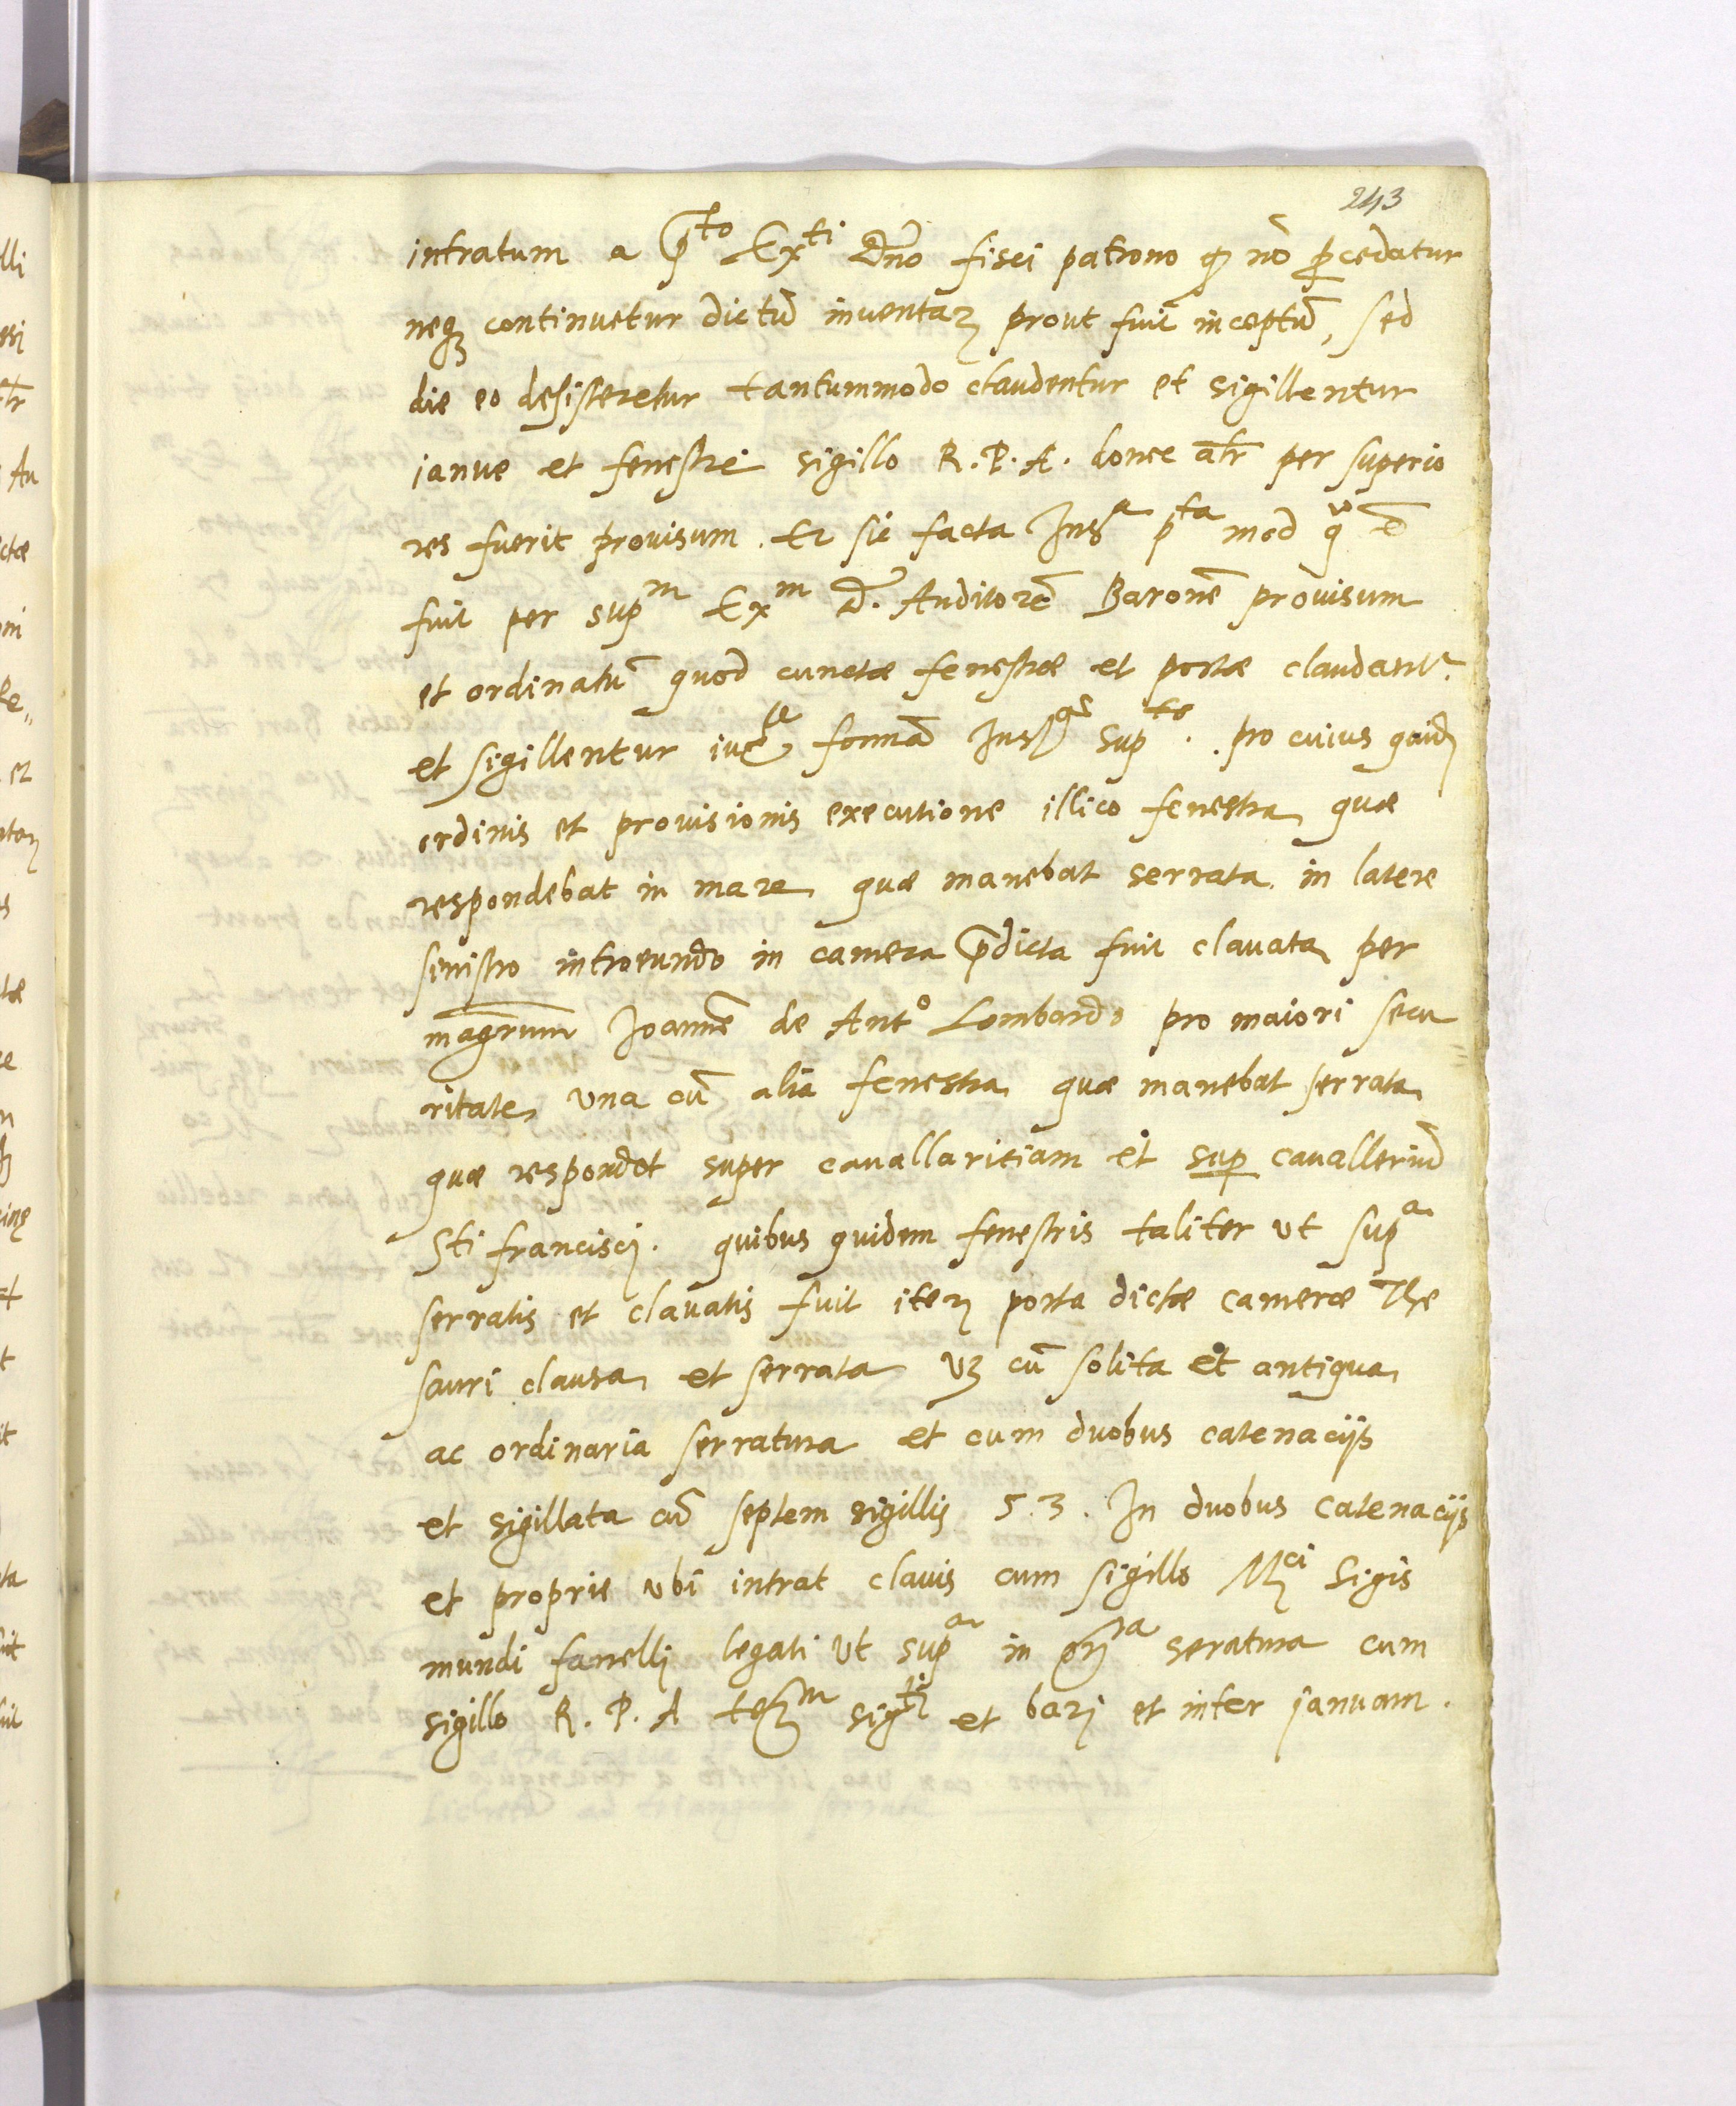 243
intratum a p̄to Exti Dn̄o fisci patrono q̄ nō procedatur
neq; continuetur dictū inventaz prout fuit inceptū, sed
die eo desisteretur tantummodo claudentur et sigillentur
ianue et fenestre sigillo R. P. A. donec atr̄ per superio
res fuerit provisum. Et sic facta Insa pta mod
fuit per supm Exm D. Auditorē Baronē provisum
et ordinatū quod cunctae fenestrae et portae claudantr
et sigillentur formā supte. pro cuius quidz
ordinis et provisionis executione illico fenestra quae
respondebat in mare quae manebat serrata in latere
sinistro introeundo in camera p̄dicta fuit clavata per
magrum Joannē de Anto Lombardo pro maiori secu
ritate una cū alia fenestra quae manebat serrata
quae respondet super cavallaritiam et sup cavalleriud
Sti francisci. quibus quidem fenestris taliter ut supa
serratis et clavatis fuit iterz porta dictae camerae The
sauri clausa et serrata vz cū solita et antiqua
ac ordinaria serratura et cum duobus catenacijs
et sigillata cū septem sigillis 5. 3. In duobus catenacijs
et proprie ubi intrat clavis cum sigillo Mci Sigis
mundi fanelli legati ut supa in seratura cum
sigillo R. P. A et barj et inter januam.